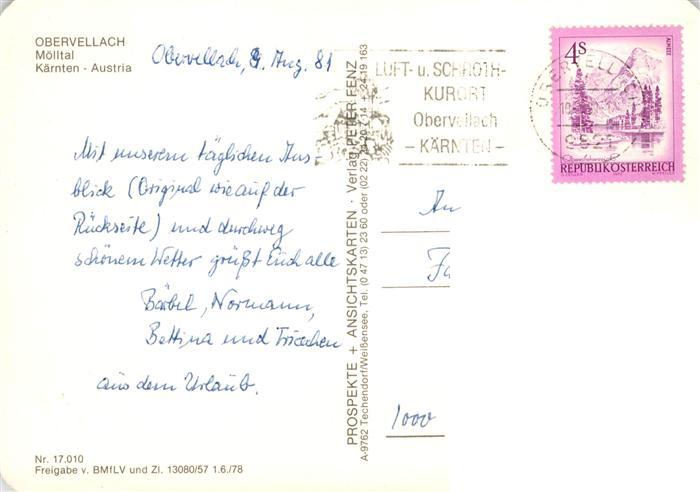 OBERVELLACH
Mölltal
Kärnten - Austria
Obervellach, 9. Aug. 81
Mit unserem täglichen Aus-
blick (Original wie auf der
Rückseite) und durchweg
schönem Wetter grüßt Euch alle
Bärbel, Normann,
Bettina und
aus dem Urlaub.
Nr. 17.010
Freigabe v. BMfLV und Zl. 13080/57 1.6./78
PROSPEKTE + ANSICHTSKARTEN · Verlag PETER FENZ
A-9762 Techendorf/Weißensee, Tel. (0 47 13) 23 60 oder (02 22)
LUFT- u. SCHROTH-
KURORT
Obervellach
- KÄRNTEN -
OBERVELLACH
4S
ALMSEE
REPUBLIK ÖSTERREICH
An
Fa
1000